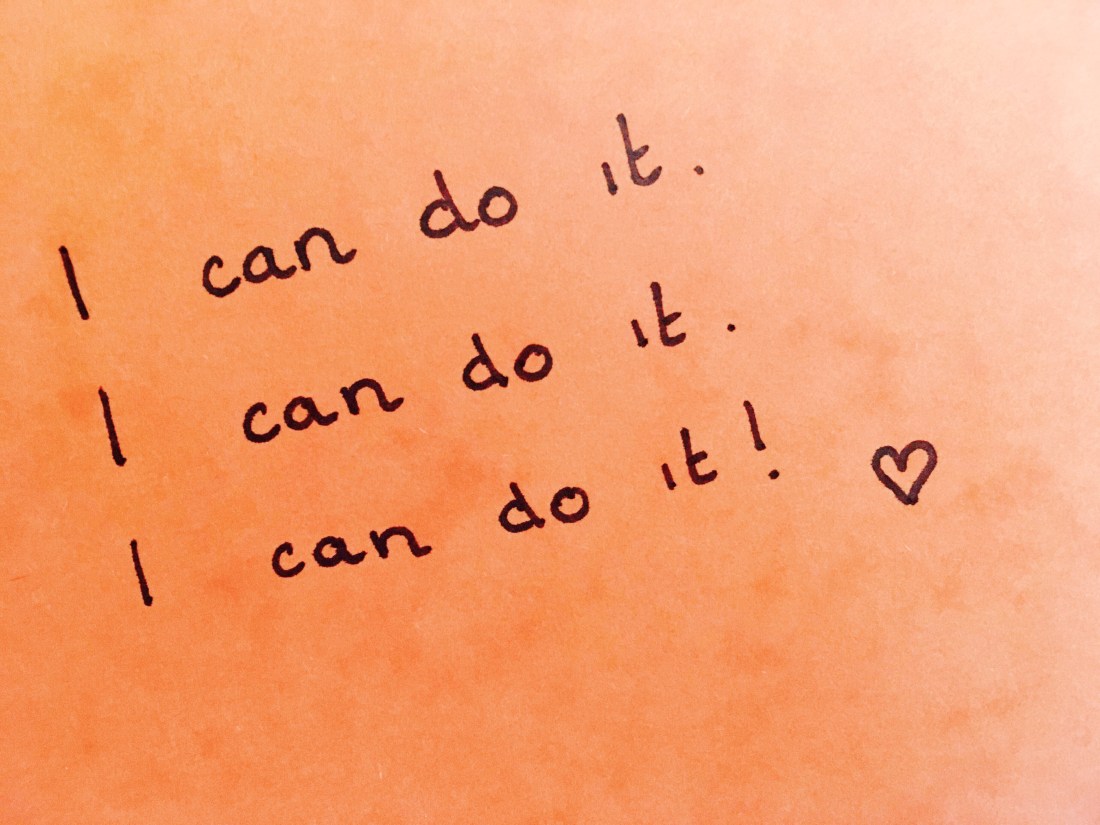 I can do it.
I can do it.
I can do it! ♡